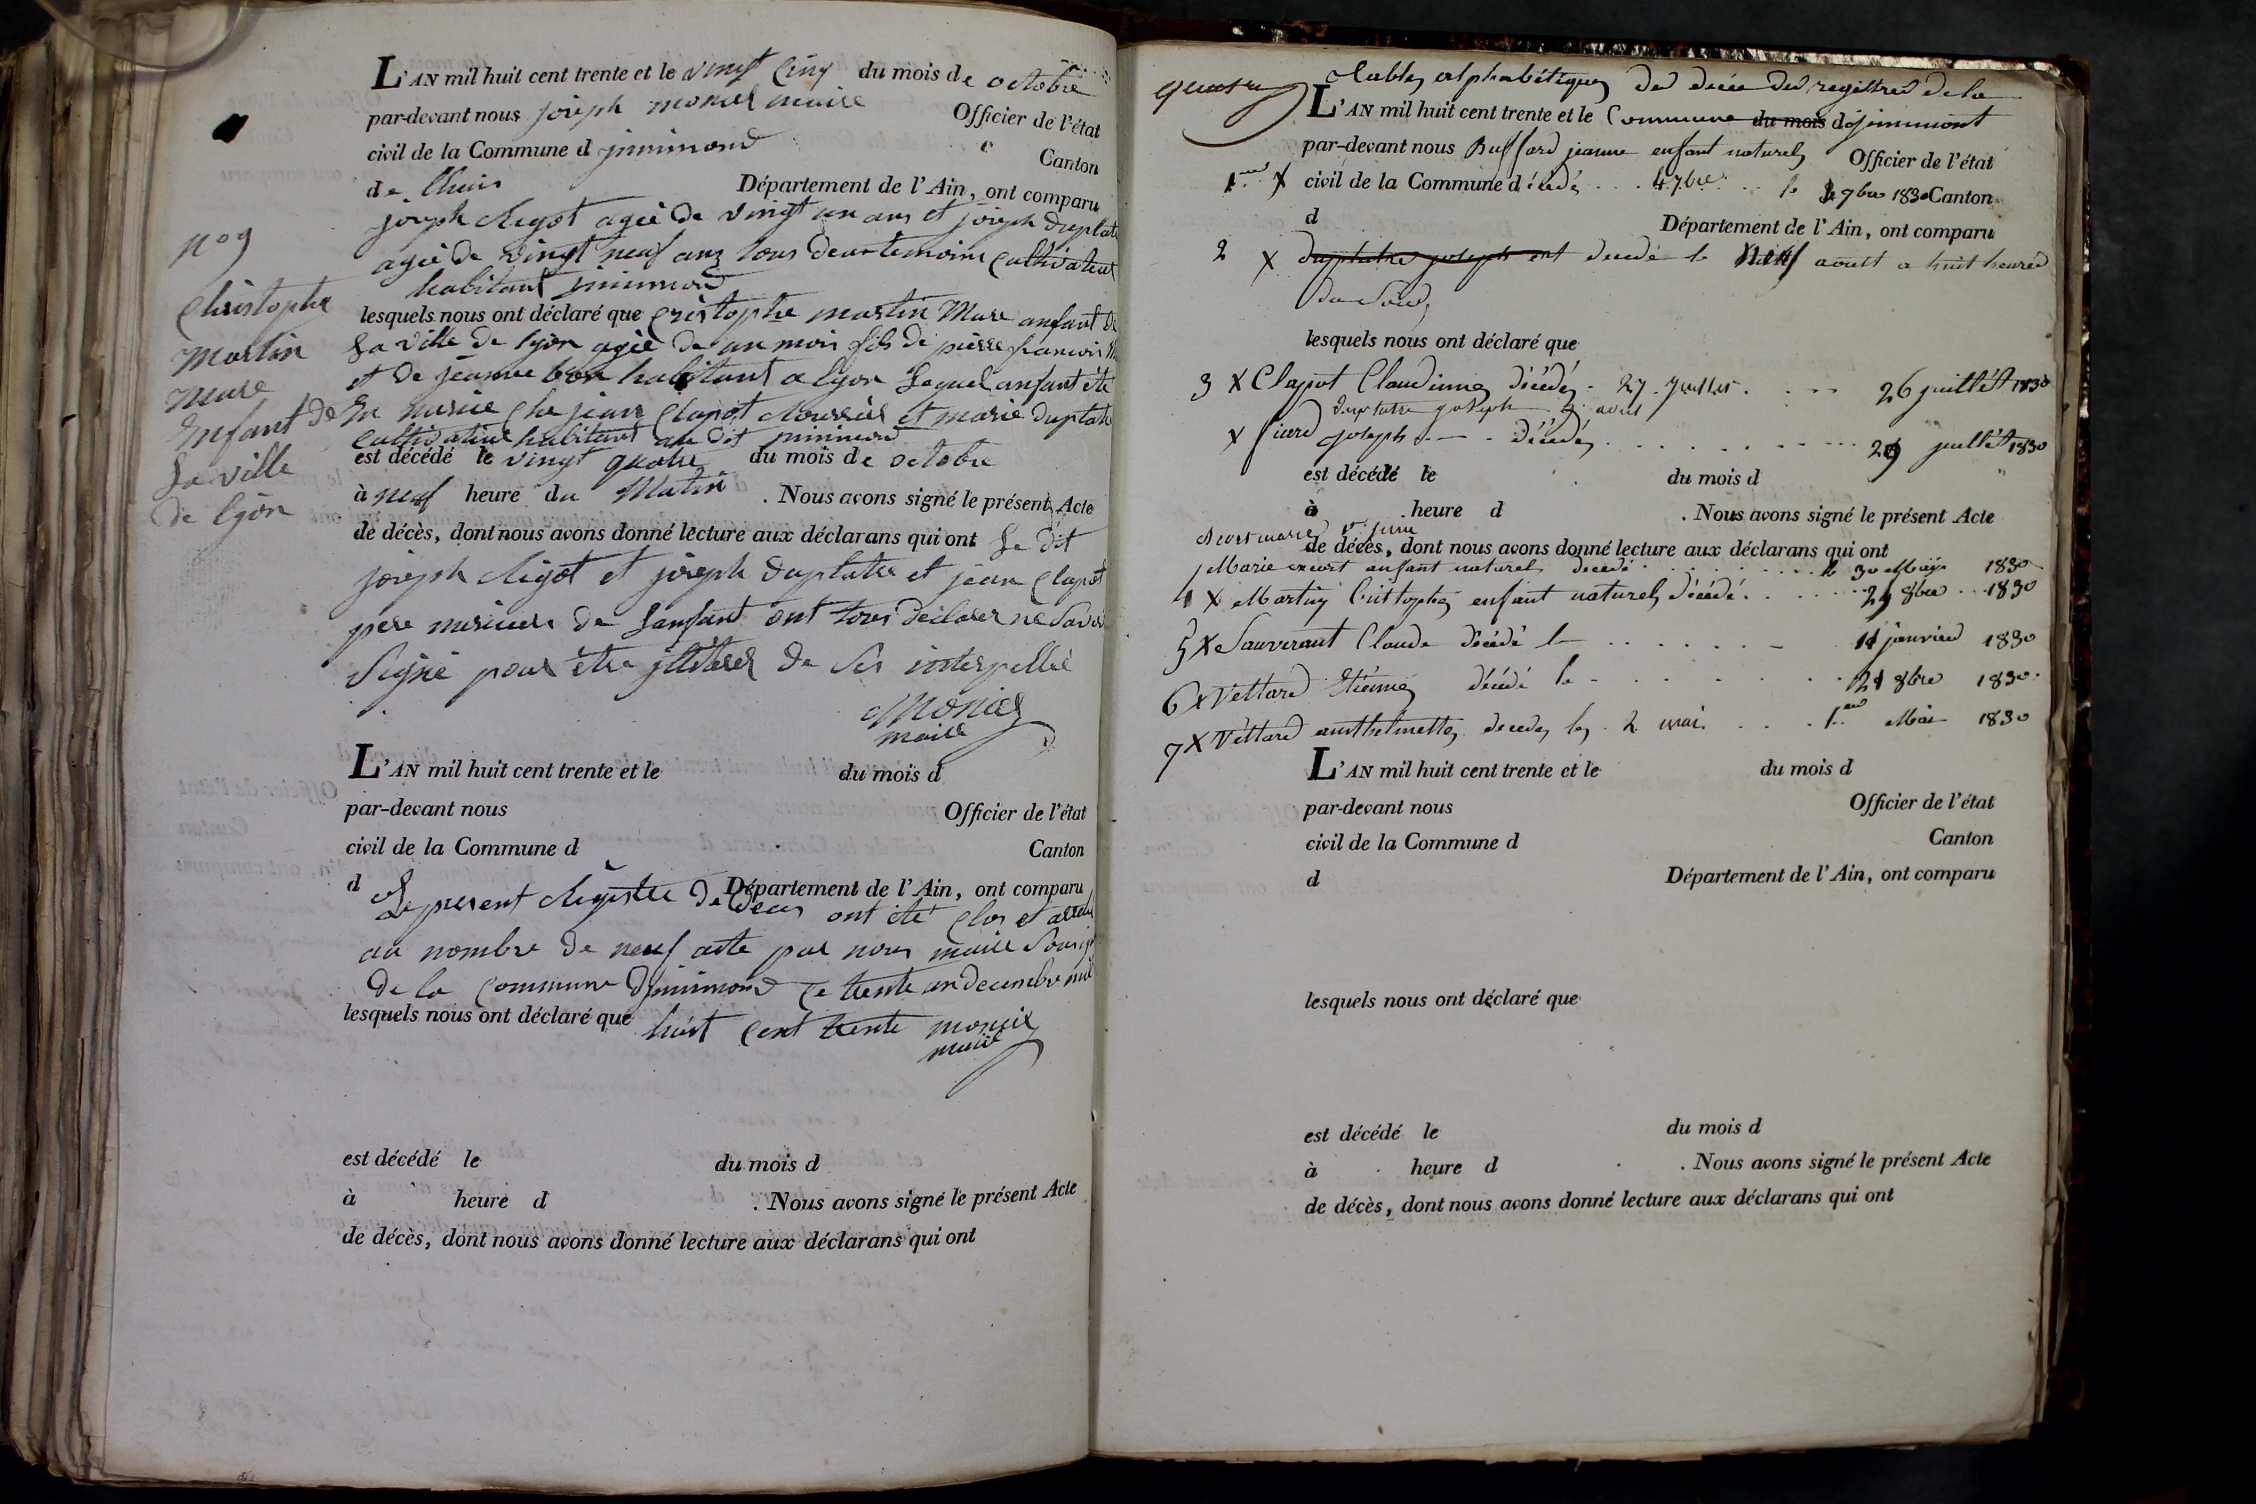 L'AN mil huit cent trente et le vingt cinq du mois de octobre
par-devant nous joseph monier maire Officier de l'état
civil de la Commune d jnnimond Canton
de lhuis Département de l'Ain, ont comparu
joseph Rigot agée de vingt un ans et joseph duplatre
agée de vingt neuf ans tous deux temoins cultivateur
habitant jnnimond
No 9
Christophe
Martin
Mure
Enfant de
La ville
de lyon
lesquels nous ont déclaré que Cristophe martin Mure anfant de
La ville de lyon agée de un mois fils de pierre francois
et de jeanne habitant a lyon Lequel anfant été
En nurice che jean Clapot et marie duplatre
Cultivateur habitant au dit jnnimond
est décédé le vingt quatre du mois de octobre
à neuf heure du Matin . Nous avons signé le présent Acte
de décès, dont nous avons donné lecture aux déclarans qui ont Le dit
joseph Rigot et joseph duplatre et jean Clapot
pere nuricier de Lanfant ont tous declarer ne Savoir
Signé pour être de Ses interpellé
Monier
maire
L'AN mil huit cent trente et le du mois d
par-devant nous Officier de l'état
civil de la Commune d Canton
d Département de l'Ain, ont comparu
Le present Registre De Deces ont été Clos et
au nombre de neuf acte par nous maire
De la Commune Djnnimond Ce trente un decembre mil
lesquels nous ont déclaré que huit Cent trente monier
maire
est décédé le du mois d
à heure d . Nous avons signé le présent Acte
de décès, dont nous avons donné lecture aux déclarans qui ont
Tables alphabétiques des décée des registres de la
L'AN mil huit cent trente et le Commune du mois d jnnimont
par-devant nous Buffard jeanne enfant naturel Officier de l'état
1er X civil de la Commune décédé . . . 4 7bre . . le 7bre 1830 Canton
d Département de l'Ain, ont comparu
2 X duplatre joseph ont decedé le Neuf aoust a huit heures
du Soir
lesquels nous ont déclaré que
3 X Clapot Claudine décédé . 27 juillet . . . 26 juillet 1830
duplatre joseph 9 aout
X joseph . . . décédé . . . 29 juillet 1830
est décédé le du mois d
à heure d . Nous avons signé le présent Acte
de décès, dont nous avons donné lecture aux déclarans qui ont
Marie enfant naturel decedé . . . le 30 May 1830
X Martin Cristophe enfant naturel décédé . . . 24 8bre . . 1830
5 X Sauverant Claude décédé le . . . 11 janvier 1830
6 X Vettard Etienne décédé le . . . 21 8bre 1830
7 X Vettard anthelmette decedé le 2 mai . . . 1er Mai 1830
L'AN mil huit cent trente et le du mois d
par-devant nous Officier de l'état
civil de la Commune d Canton
d Département de l'Ain, ont comparu
lesquels nous ont déclaré que
est décédé le du mois d
à heure d . Nous avons signé le présent Acte
de décès, dont nous avons donné lecture aux déclarans qui ont